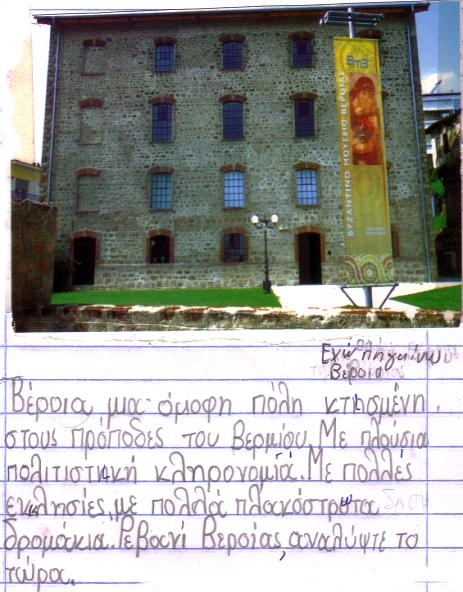 ΒΤΒ
ΒΥΖΑΝΤΙΝΟ ΜΟΥΣΕΙΟ ΒΕΡΟΙΑΣ
Εχω πηγαίνω
Βέροια
Βέροια, μια όμοφη πόλη κτισμένη
στους πρόποδες του Βερμίου. Με πλούσια
πολιτιστική κληρονομιά. Με πολλές
εκκλησίες, με πολλά πλακόστρωτα
δρομάκια. Ρεβανί Βεροίας, αναλύψτε το
τώρα.